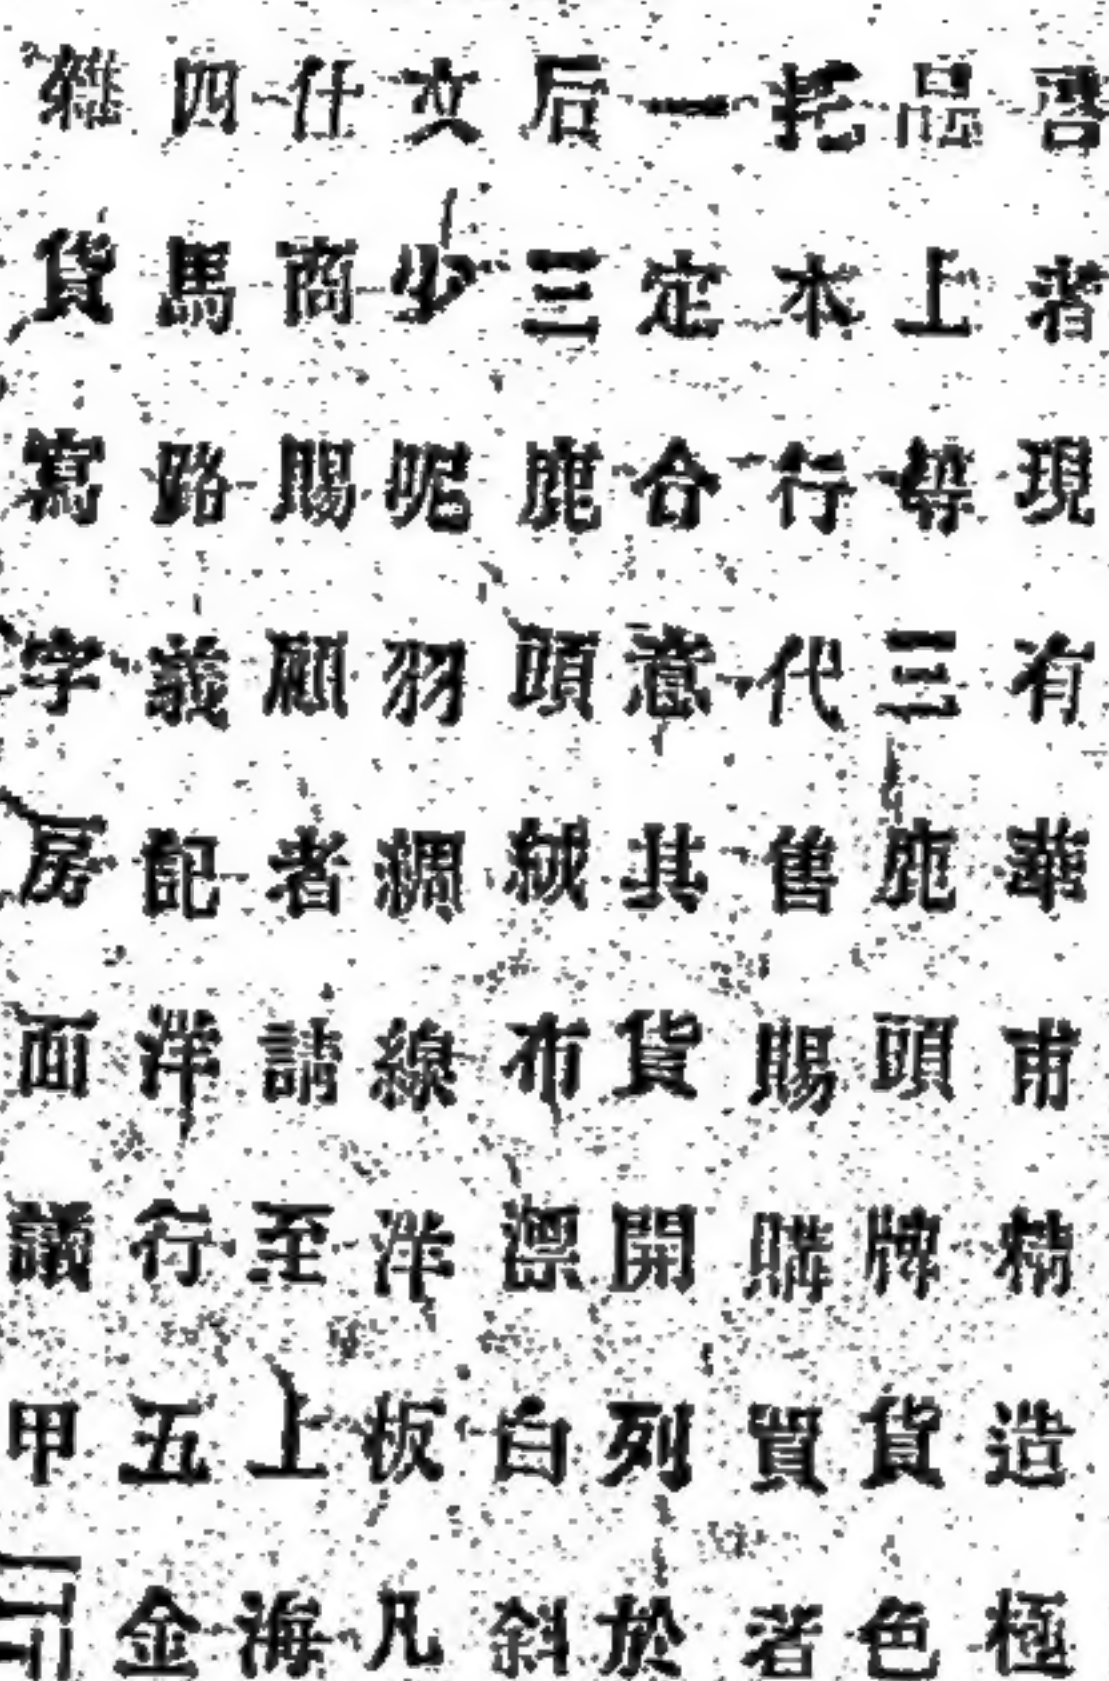 啓者現有華甫精造極
品上等三鹿頭牌貨色
托本行代售賜購買者
一定合意其貨開列於
后三鹿頭絨布漂白斜
文少呢羽綢線洋板凡
仕商賜顧者請至上海
四馬路義記洋行五金
雜貨寫字房面議甲